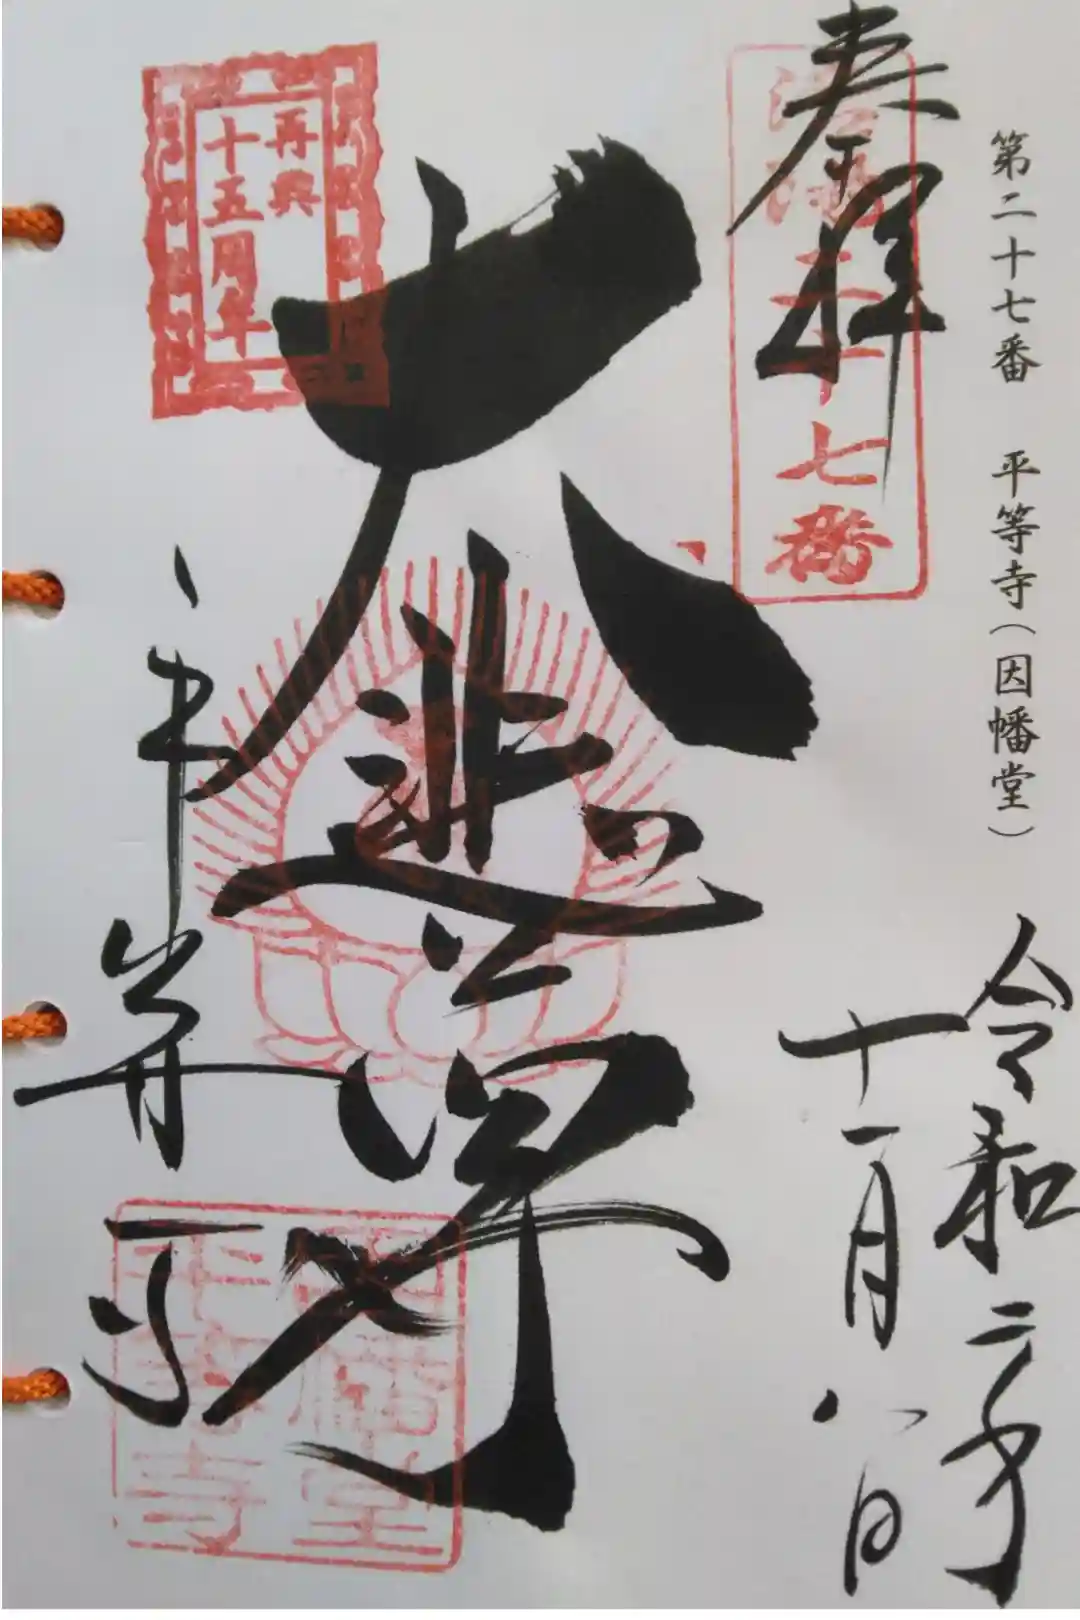 第二十七番 平等寺（因幡堂）
奉拝
洛陽二十七番
令和二年
十一月八日
大悲殿
再興
十五周年
平等寺
因幡堂
平等寺